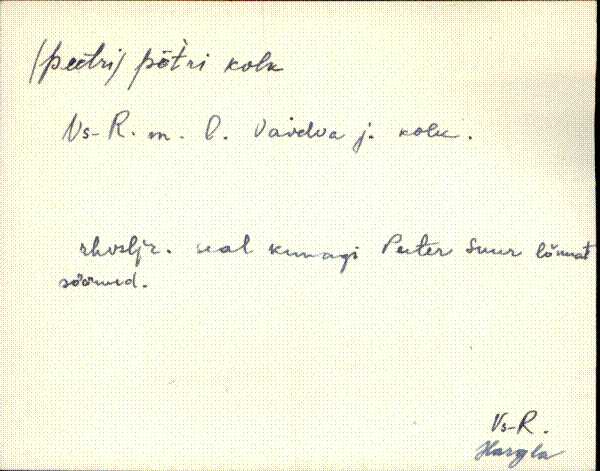 (peetri) pȫt̀ri kolk
Vs-R. m. l. Vaidva j. kolk.
rhvsljr. seal kunagi Peeter Suur lõunat
söönud.
Vs-R.
Hargla